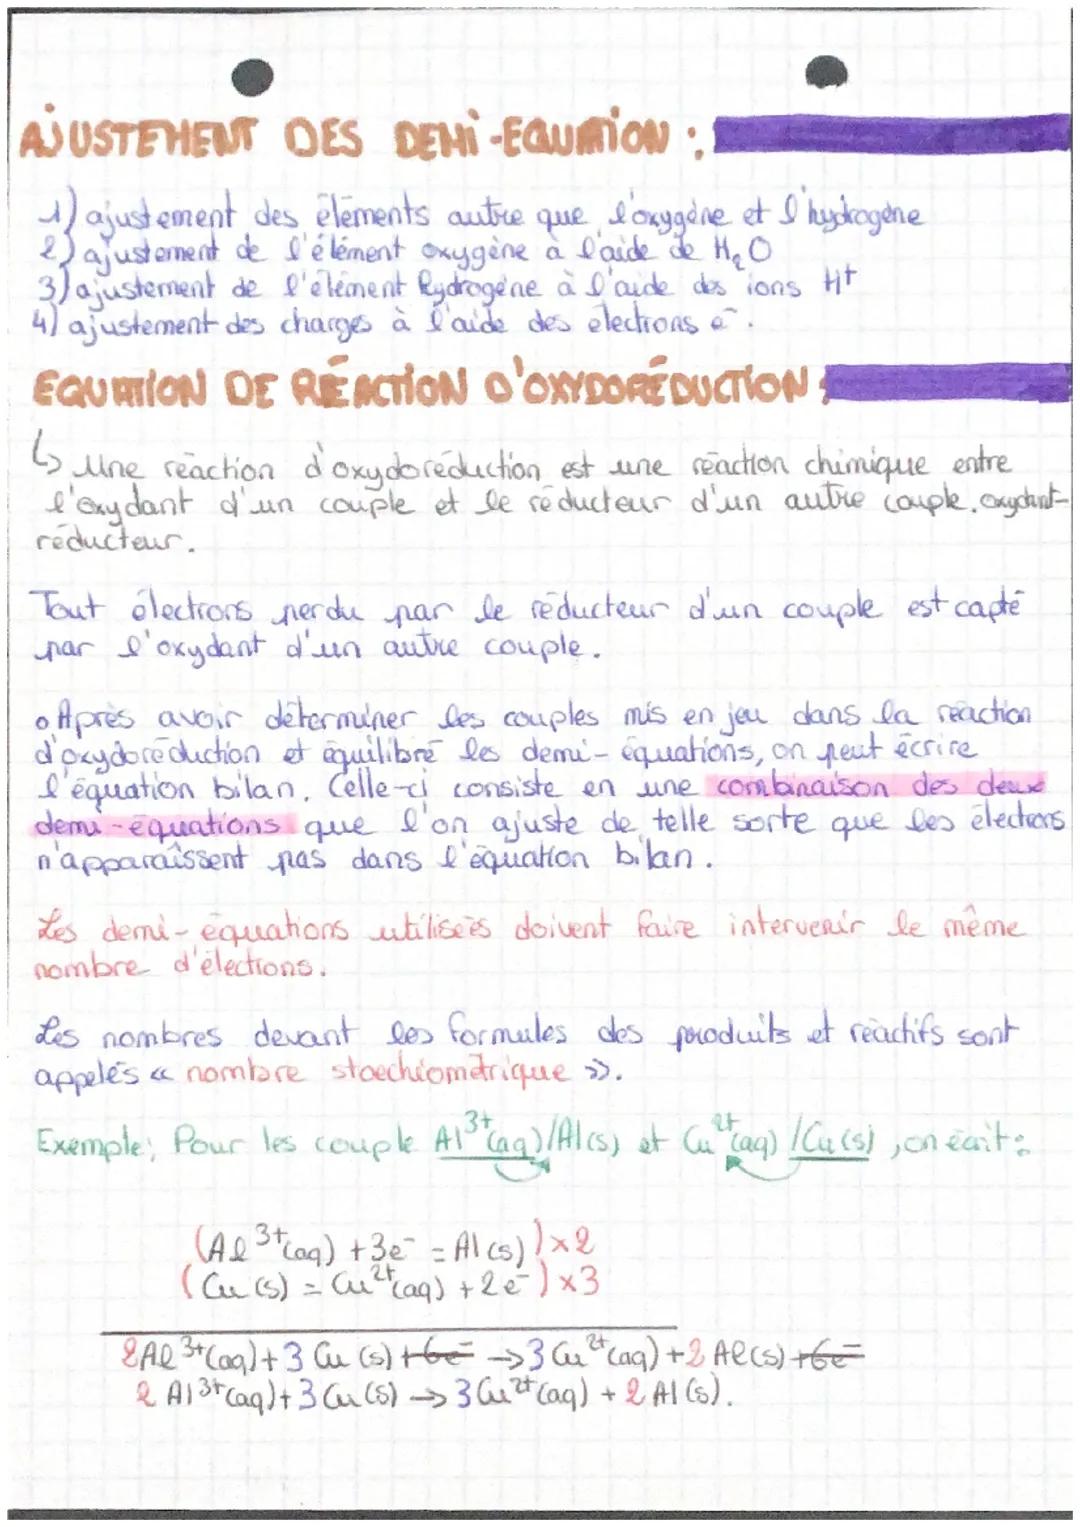 AJUSTEMENT DES DEMI-EQUATION :
1) ajustement des éléments autre que l'oxygène et l'hydrogène
2) ajustement de l'élément oxygène à l'aide de H₂O
3) ajustement de l'élément hydrogène à l'aide des ions H⁺
4) ajustement des charges à l'aide des électrons e⁻.
EQUATION DE RÉACTION D'OXYDORÉDUCTION :
↳ Une réaction d'oxydoréduction est une réaction chimique entre
l'oxydant d'un couple et le réducteur d'un autre couple oxydant-
réducteur.
Tout électrons perdu par le réducteur d'un couple est capté
par l'oxydant d'un autre couple.
o Après avoir déterminer les couples mis en jeu dans la réaction
d'oxydoréduction et équilibré les demi-équations, on peut écrire
l'équation bilan. Celle-ci consiste en une combinaison des deux
demi-équations que l'on ajuste de telle sorte que les électrons
n'apparaîssent pas dans l'équation bilan.
Les demi-équations utilisées doivent faire intervenir le même
nombre d'électrons.
Les nombres devant les formules des produits et réactifs sont
appelés « nombre stoechiométrique ».
Exemple: Pour les couple Al³⁺(aq)/Al(s) et Cu²⁺(aq)/Cu(s), on écrit :
(Al³⁺(aq) + 3e⁻ = Al(s)) ×2
(Cu(s) = Cu²⁺(aq) + 2e⁻) ×3
2Al³⁺(aq) + 3 Cu(s) + 6e⁻ → 3 Cu²⁺(aq) + 2 Al(s) + 6e⁻
2 Al³⁺(aq) + 3 Cu(s) → 3 Cu²⁺(aq) + 2 Al(s).